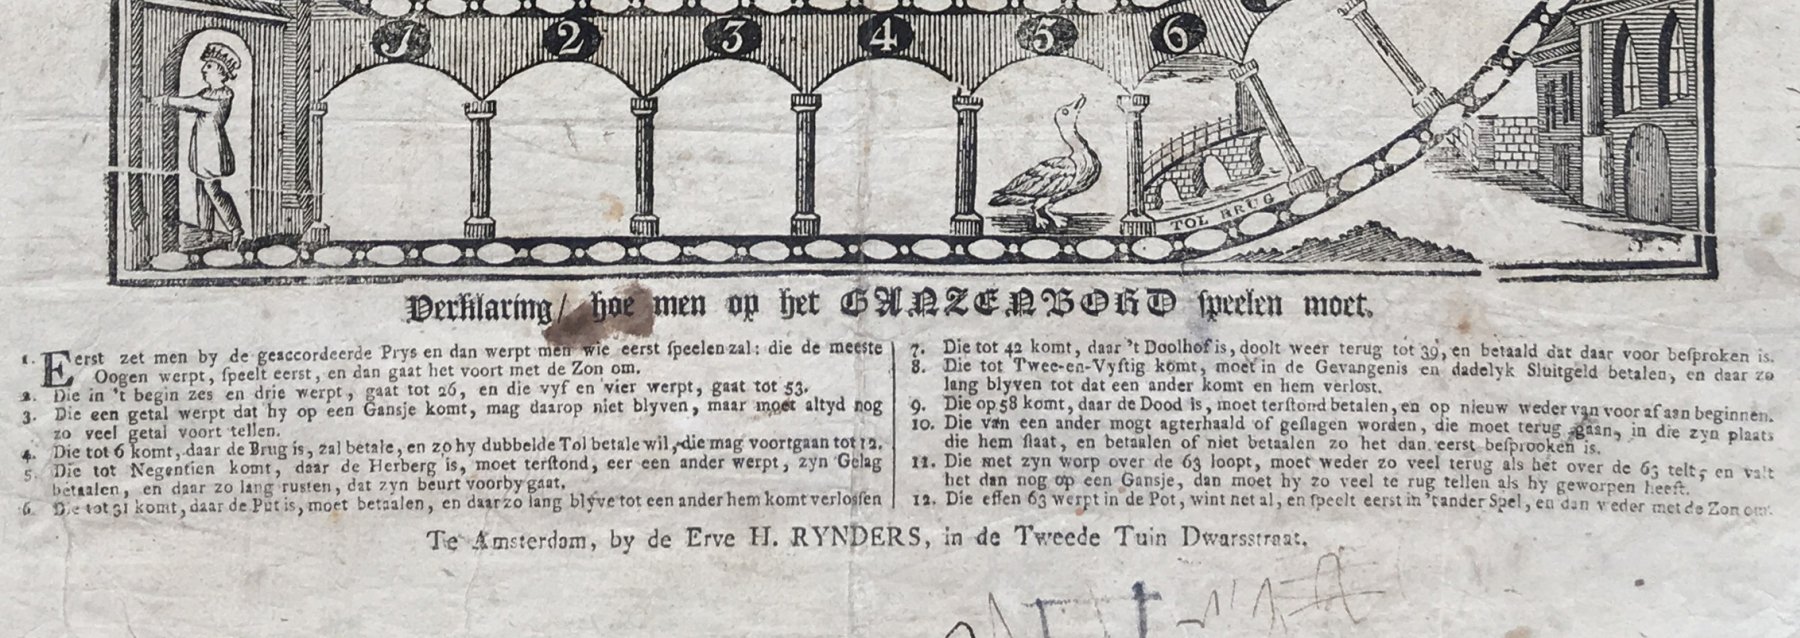 1 2 3 4 5 6
TOL BRUG
Verklaring / hoe men op het GANZENBORD ſpeelen moet.
1. Eerst zet men by de geaccordeerde Prys en dan werpt men wie eerst ſpeelen zal: die de meeste
Oogen werpt, ſpeelt eerst, en dan gaat het voort met de Zon om.
2. Die in 't begin zes en drie werpt, gaat tot 26, en die vyf en vier werpt, gaat tot 53.
3. Die een getal werpt dat hy op een Gansje komt, mag daarop niet blyven, maar moet altyd nog
zo veel getal voort tellen.
4. Die tot 6 komt, daar de Brug is, zal betale, en zo hy dubbelde Tol betale wil, die mag voortgaan tot 12.
5. Die tot Negentien komt, daar de Herberg is, moet terſtond, eer een ander werpt, zyn Gelag
betaalen, en daar zo lang rusten, dat zyn beurt voorby gaat.
6. Die tot 31 komt, daar de Put is, moet betaalen, en daar zo lang blyve tot een ander hem komt verlosſen
7. Die tot 42 komt, daar 't Doolhof is, doolt weer terug tot 39, en betaald dat daar voor beſproken is.
8. Die tot Twee-en-Vyftig komt, moet in de Gevangenis en dadelyk Sluitgeld betalen, en daar zo
lang blyven tot dat een ander komt en hem verlost.
9. Die op 58 komt, daar de Dood is, moet terſtond betaalen, en op nieuw weder van voor af aan beginnen.
10. Die van een ander mogt agterhaald of geſlagen worden, die moet terug gaan, in die zyn plaats
die hem ſlaat, en betaalen of niet betaalen zo het dan eerst beſprooken is.
11. Die met zyn worp over de 63 loopt, moet weder zo veel terug als het over de 63 telt, en valt
het dan nog op een Gansje, dan moet hy zo veel te rug tellen als hy geworpen heeft.
12. Die effen 63 werpt in de Pot, wint net al, en ſpeelt eerst in 't ander Spel, en dan weder met de Zon om.
Te Amsterdam, by de Erve H. RYNDERS, in de Tweede Tuin Dwarsstraat.